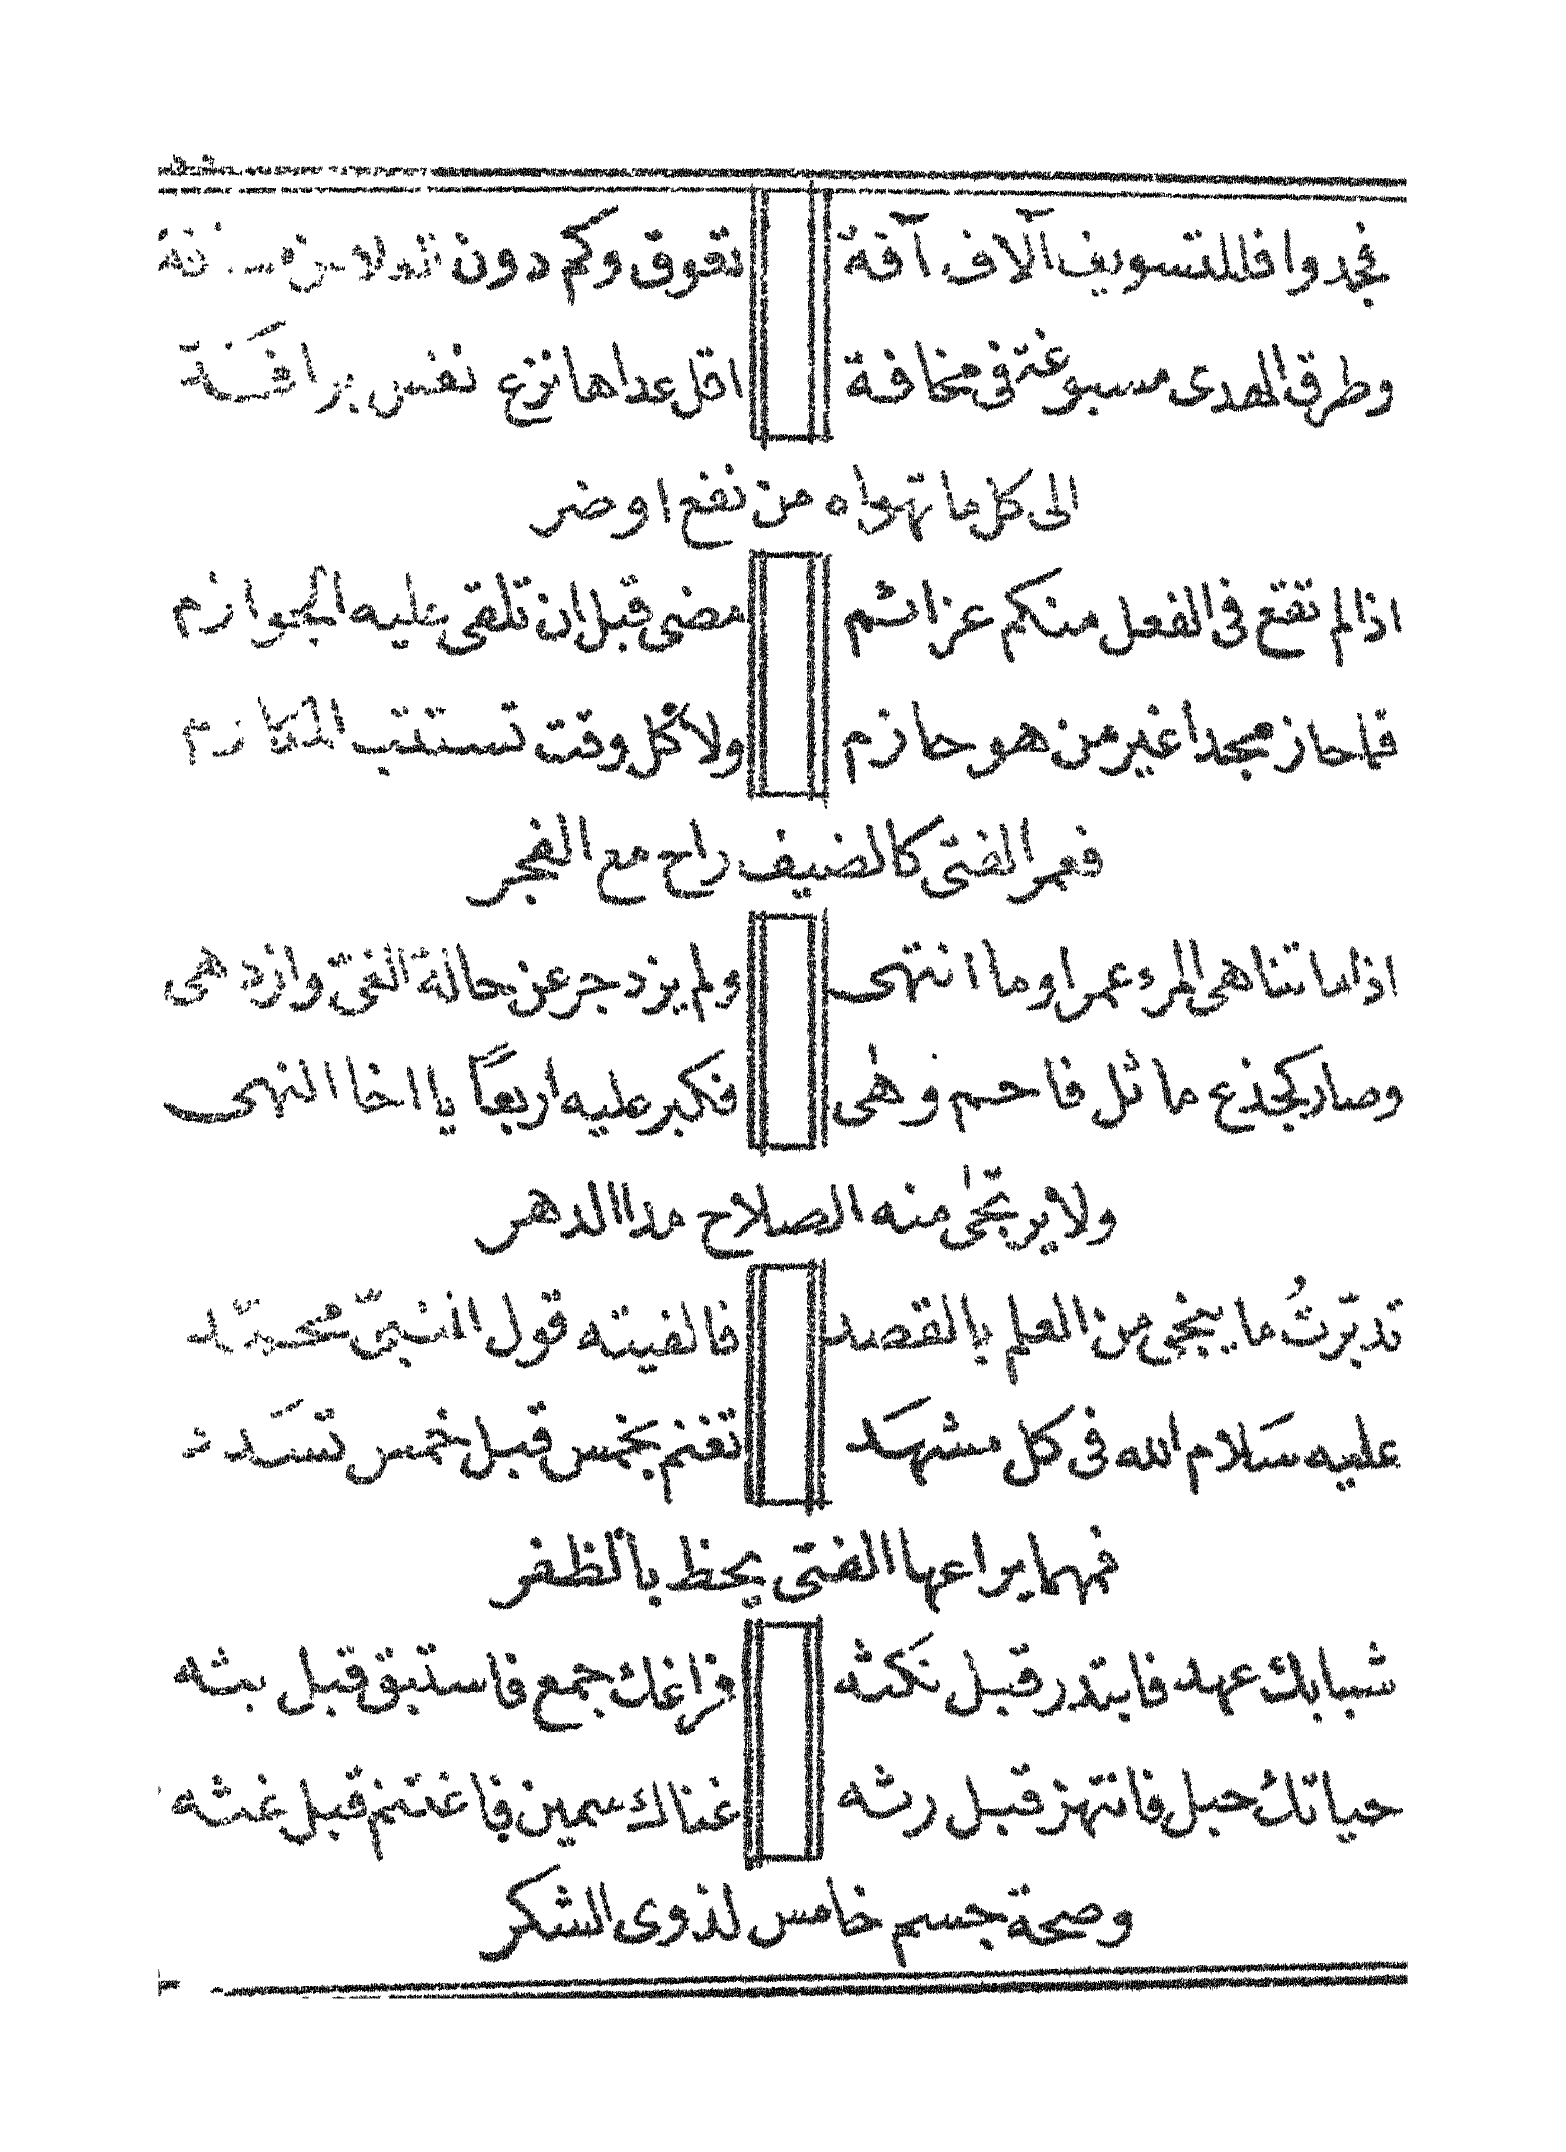 فجدوا فللتسويف آلاف آفة تقوق وكم دون
وطرق الهدى مسبوغة في مخافة اقل عداها نزع نفس برافة
الى كل ما تهواه من نفع او ضر
اذا لم تقع في الفعل منكم عزائم مضى قبل ان تلقى عليه الجوازم
فما حاز مجدا غير من هو حازم ولا كل وقت تستتب المكارم
فعمر الفتى كالضيف راح مع الفجر
اذا ما تناهى المرء عمرا وما انتهى ولم يزدجر عن حالة الغيّ وازدهى
وصار كجذع مائل فاحم وهى فكبر عليه اربعاً يا اخا النهى
ولا يرتجى منه الصلاح مدا الدهر
تدبّرتُ ما ينجي من العلم بالقصد فالفيته قول النبيّ محمّد
عليه سَلام الله في كل مشهَد تغنم بخمس قبل خمس تسَدد
فمهما يراعها الفتى يحظ بالظفر
شبابك عهد فابتدر قبل نكثه فراغك جمع فاستبق قبل بثه
حياتك حبل فانتهز قبل رثه غناك سمين فاغتنم قبل غثه
وصحة جسم خامس لذوى الشكر